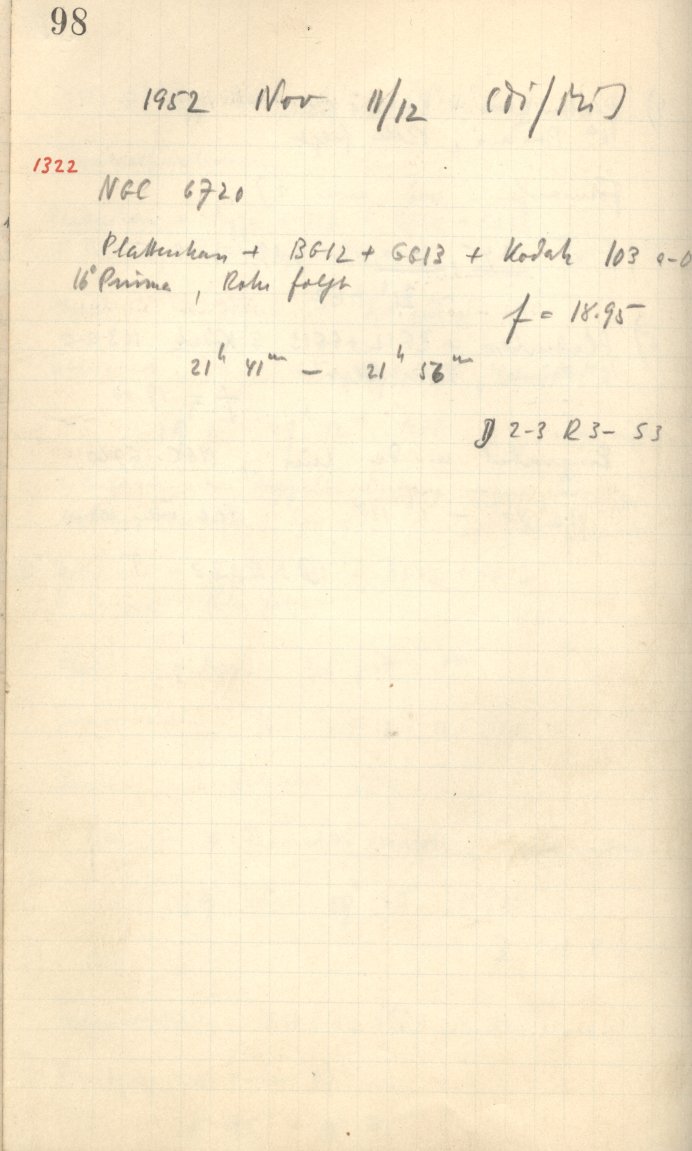 98
1952 Nov 11/12 (Di/Mi)
1322
NGC 6720
+ BG12 + GG13 + Kodak 103 a-O
16° Prisma, Rohr folgt
f = 18.95
21h 41m — 21h 56m
D 2-3 R 3- S3